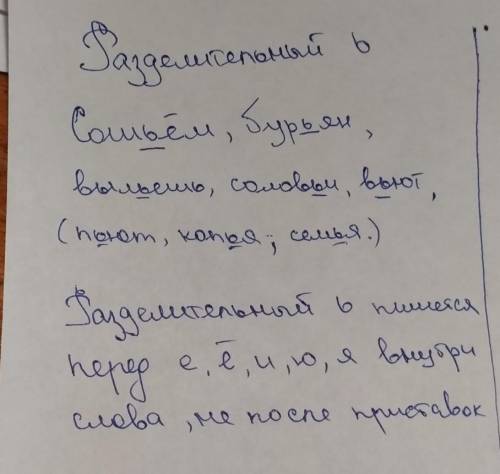 Разделительный ь
Сошьём, бурьян,
выльешь, соловьи, вьют,
(пьют, копья; семья.)
Разделительный ь пишется
перед е, ё, и, ю, я внутри
слова, не после приставок